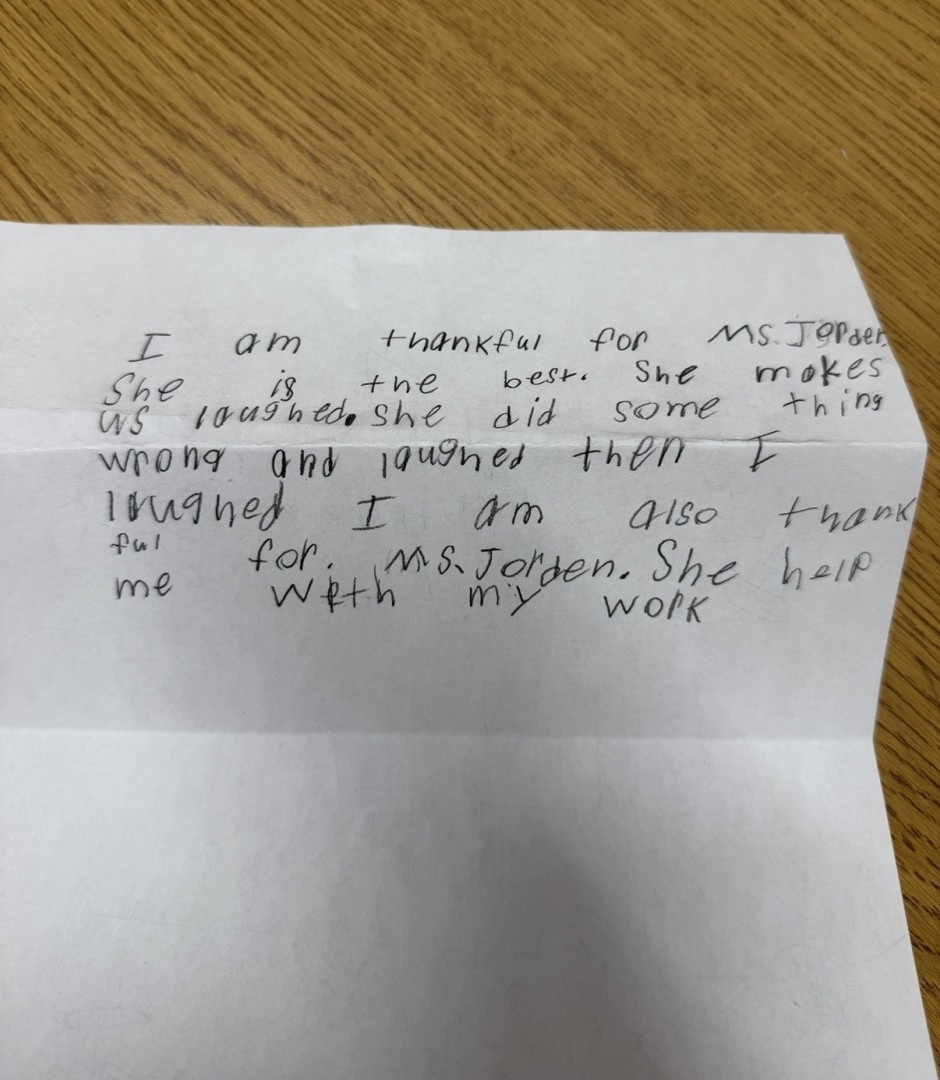 I am thankful for Ms. Jorden.
She is the best. She makes
us laughed. she did some thing
wrong and laughed then I
laughed I am also thank
ful for. Ms. Jorden. She help
me with my work